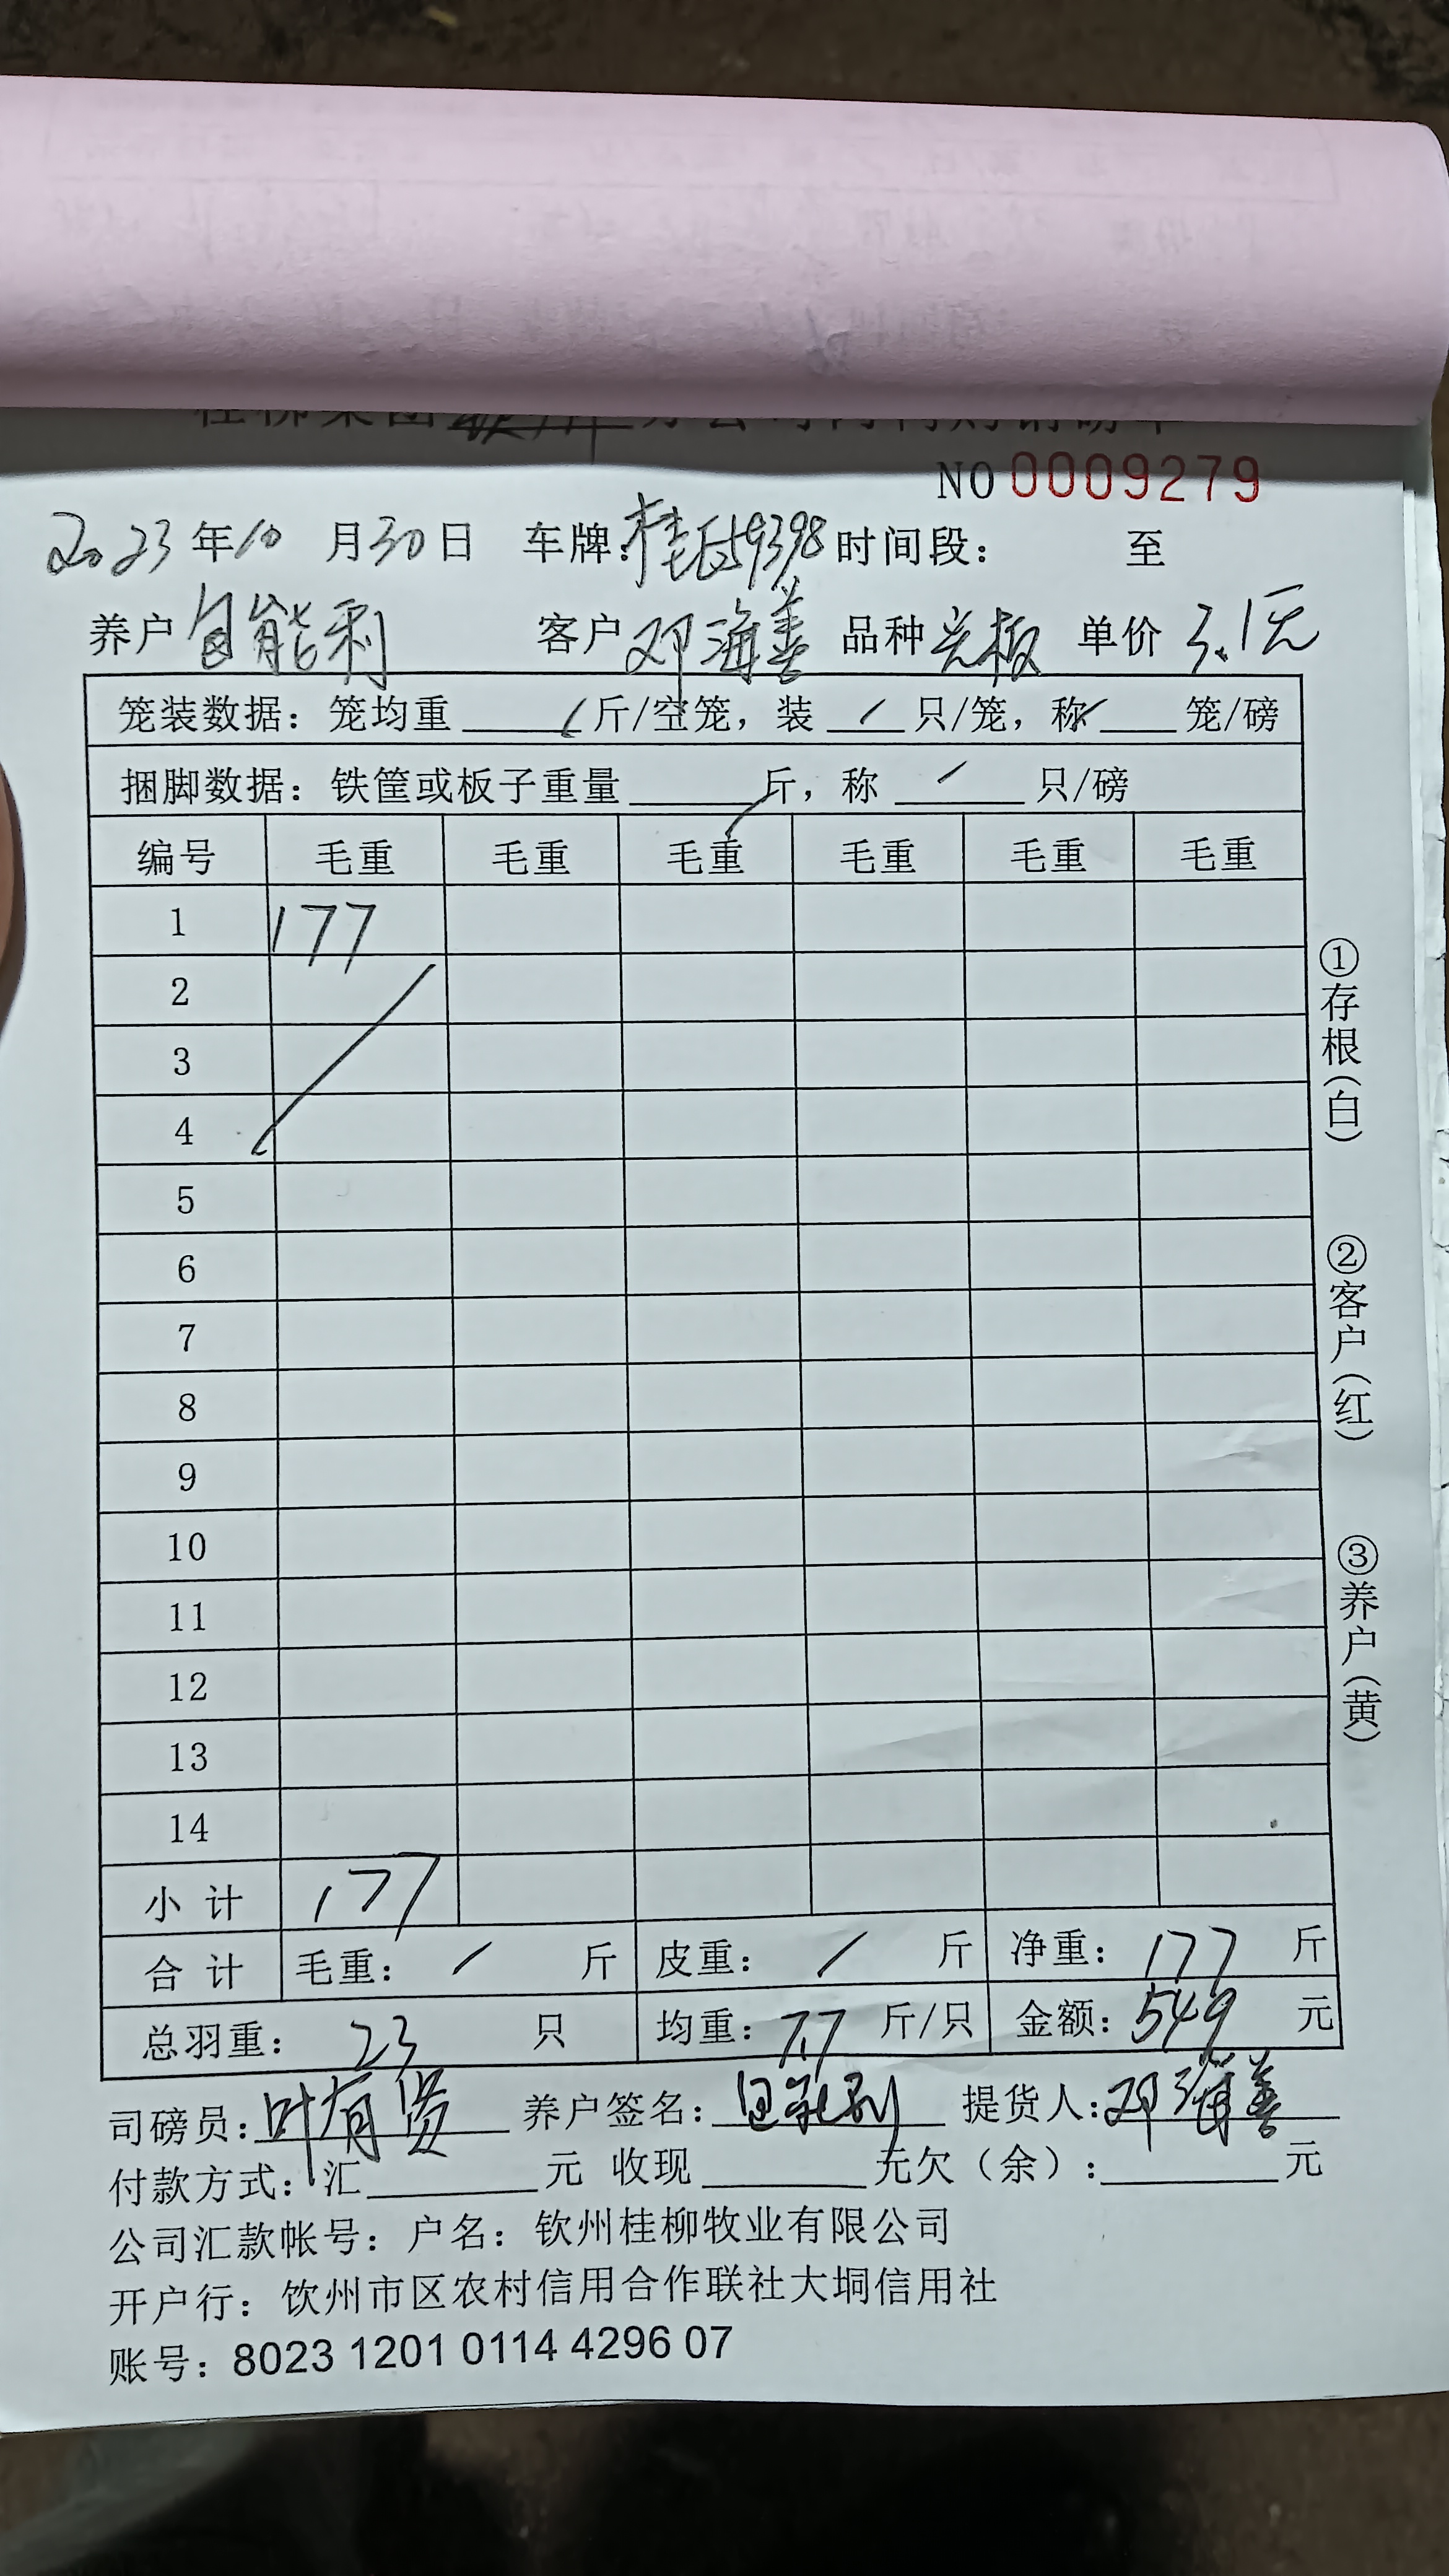 NO 0009279
2023年10月30日 车牌:桂 59398 时间段: 至
养户 能利 客户 邓海善 品种 单价 3.1元
笼装数据: 笼均重 / 斤/空笼, 装 / 只/笼, 称 / 笼/磅
捆脚数据: 铁筐或板子重量 / 斤, 称 / 只/磅
编号 毛重 毛重 毛重 毛重 毛重 毛重
1 177
2
3
4
5
6
7
8
9
10
11
12
13
14
小计 177
合计 毛重: / 斤 皮重: / 斤 净重: 177 斤
总羽重: 23 只 均重: 7.7 斤/只 金额: 549 元
司磅员: 叶有贤 养户签名: 提货人: 邓海善
付款方式: 汇 元 收现 元欠(余): 元
公司汇款帐号: 户名: 钦州桂柳牧业有限公司
开户行: 钦州市区农村信用合作联社大垌信用社
账号: 8023 1201 0114 4296 07
①存根(白)
②客户(红)
③养户(黄)